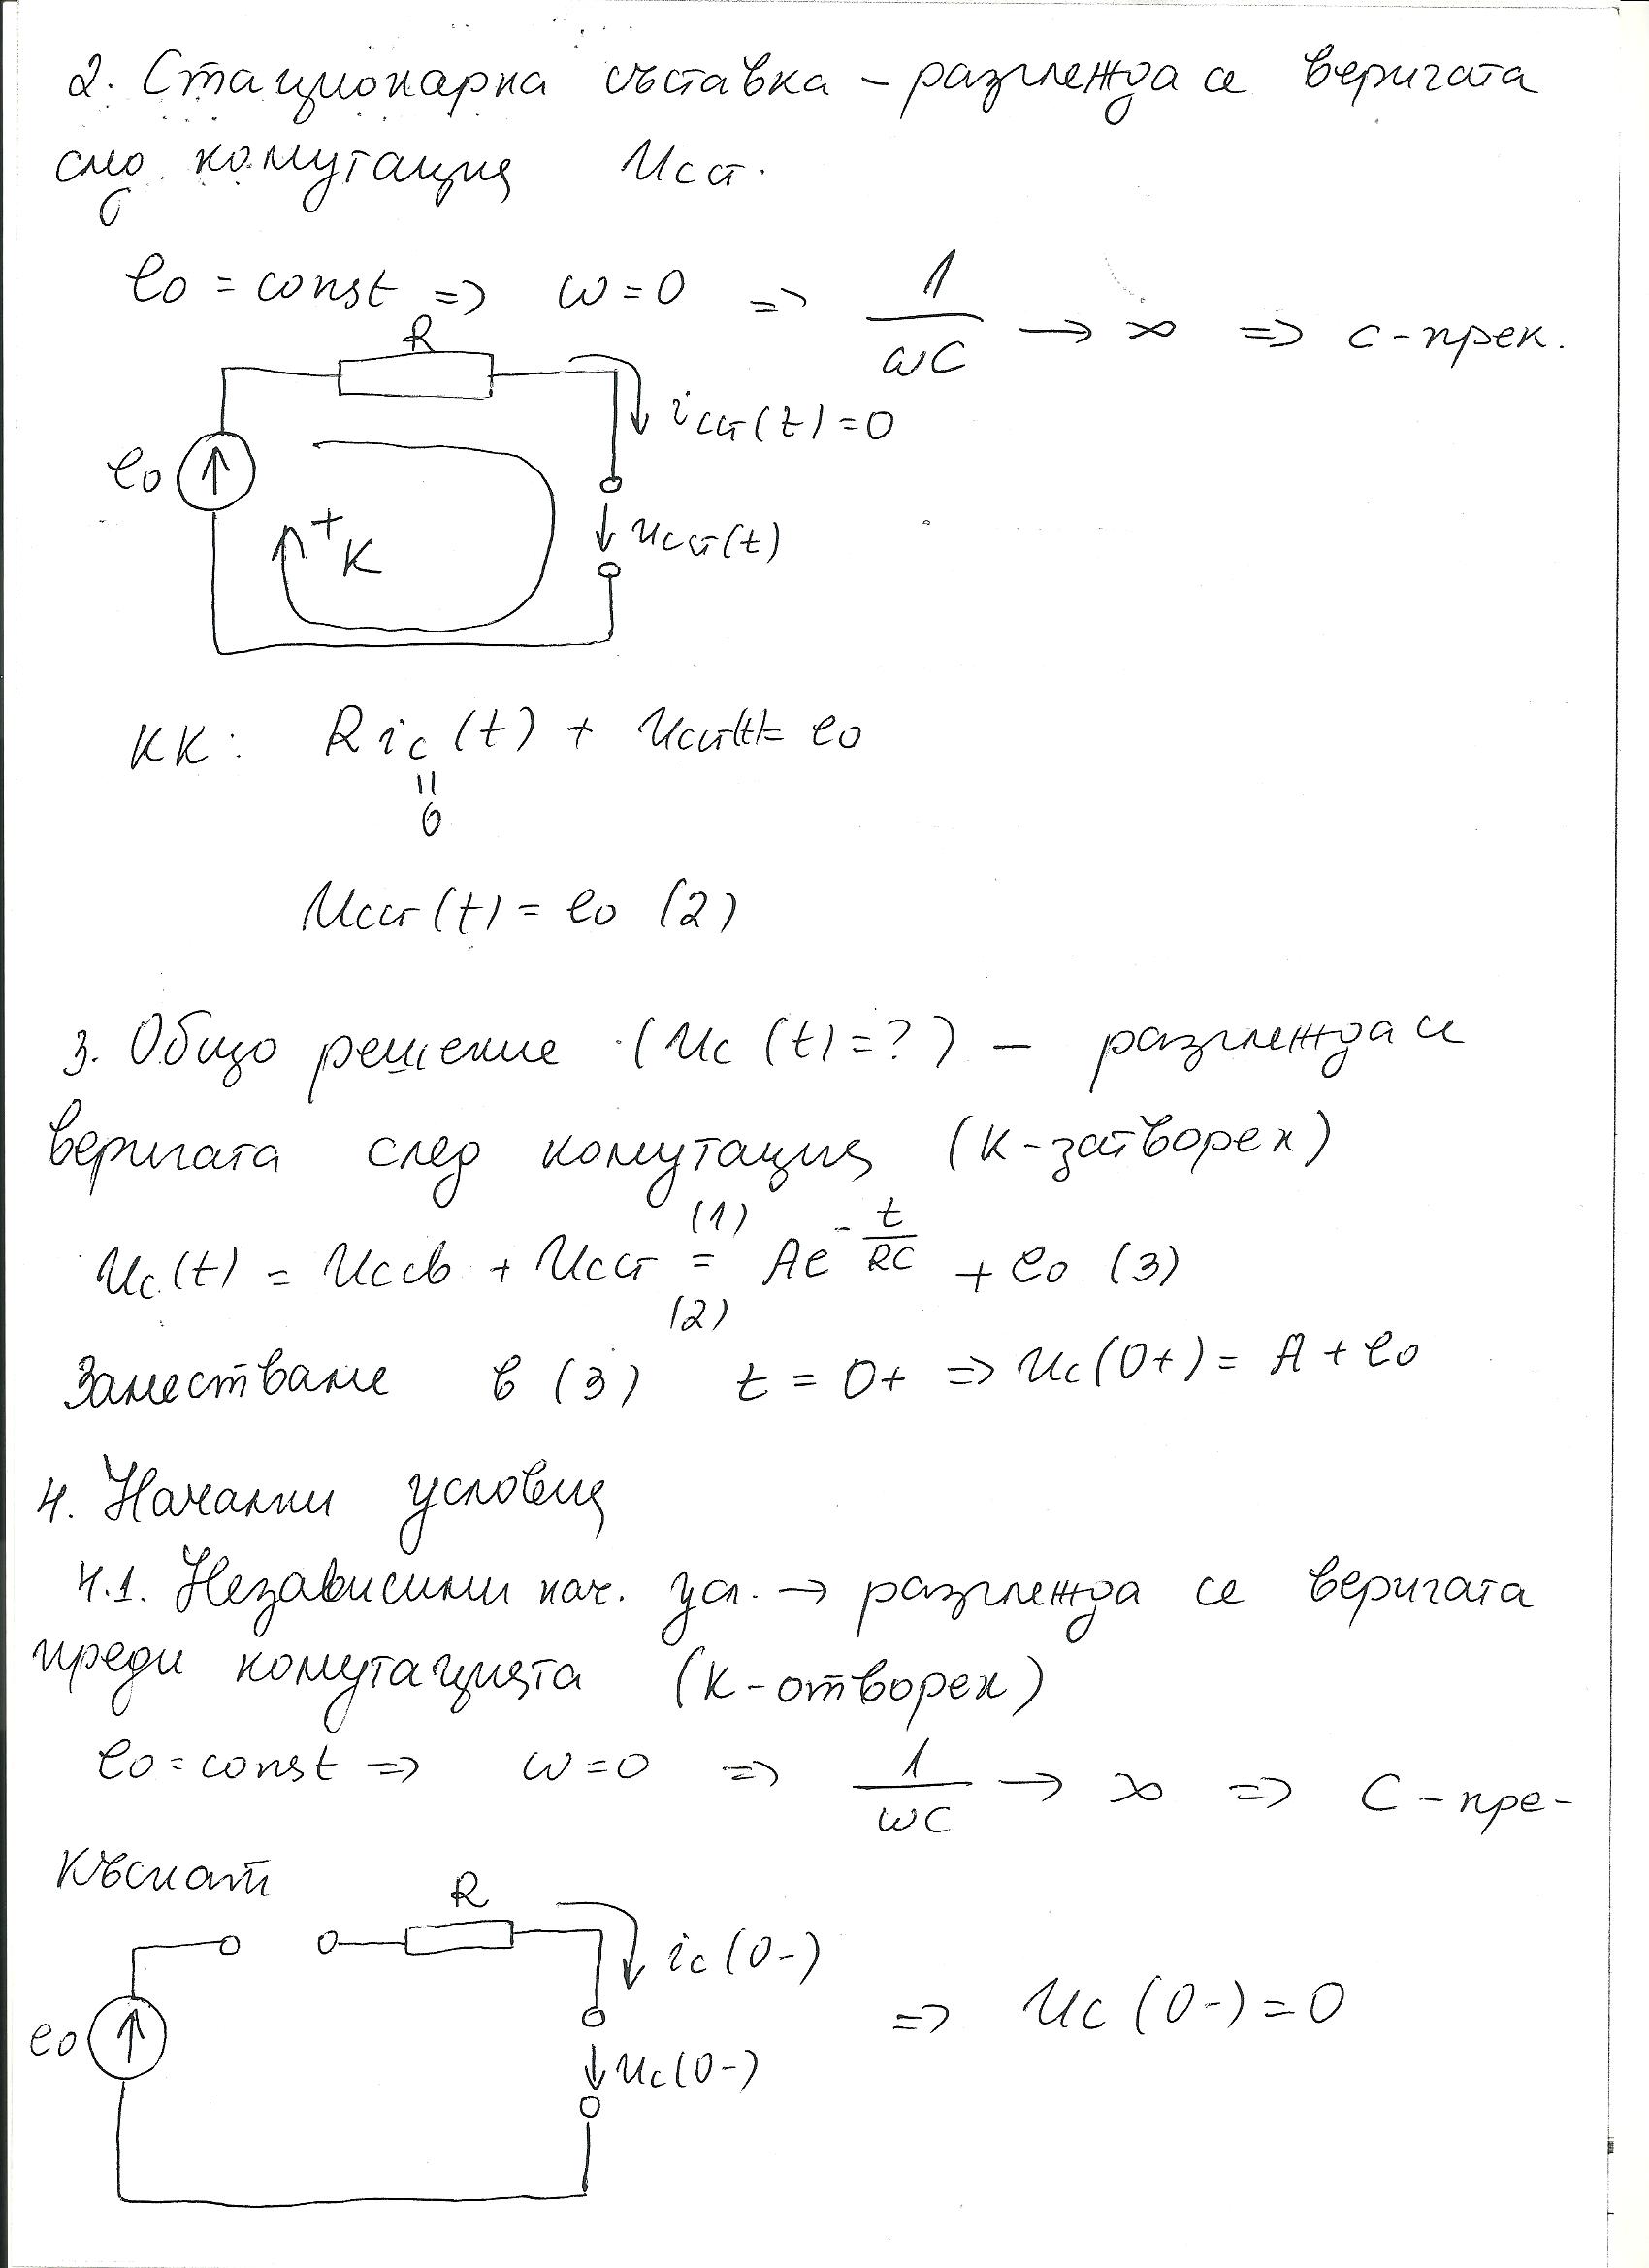 2. Стационарна съставка – разглежда се веригата
след комутация Uсст.
e0 = const => ω = 0 => 1/ωC → ∞ => C - прек.
R
iсст(t) = 0
e0
+
K
uсст(t)
KK: Ric(t) + uсст(t) = e0
"
0
Uсст(t) = e0 (2)
3. Общо решение (Uc(t) = ?) – разглежда се
веригата след комутация (К - затворен)
(1)
Uc(t) = Uссв + Uсст = Ae^(-t/RC) + e0 (3)
(2)
Заместваме в (3) t = 0+ => Uc(0+) = A + e0
4. Начални условия
4.1. Независими нач. усл. → разглежда се веригата
преди комутацията (К - отворен)
e0 = const => ω = 0 => 1/ωC → ∞ => C - пре-
къснат
R
ic(0-)
=> Uc(0-) = 0
e0
uc(0-)